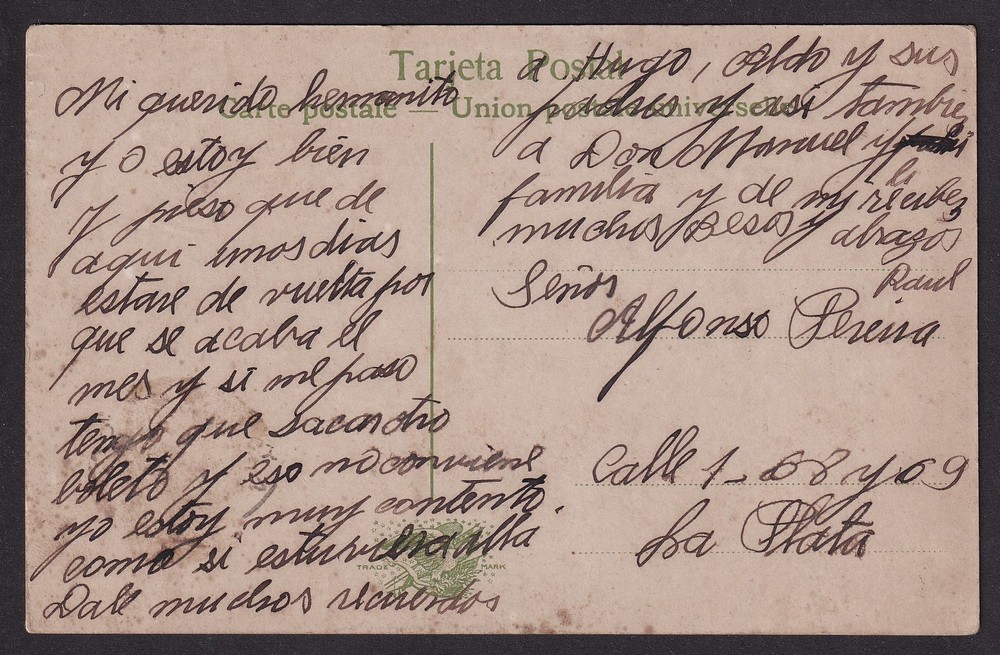 Tarjeta Postal
Carte postale — Union postale universelle
Mi querido hemanito
yo estoy bien
y pieso que de
aqui unos dias
estare de vuelta por
que se acaba el
mes y si me paso
tengo que sacar otro
boleto y eso no conviene
yo estoy muy contento.
como si estuviera alla
Dale muchos recuerdos
a Hugo, Aldo y sus
padres y asi tambien
a Don Manuel y
la
familia y de mi recibes
muchos besos y abrazos
Raul
Señor
Alfonso Pereira
Calle 1 - 68 y 69
La Plata
TRADE MARK